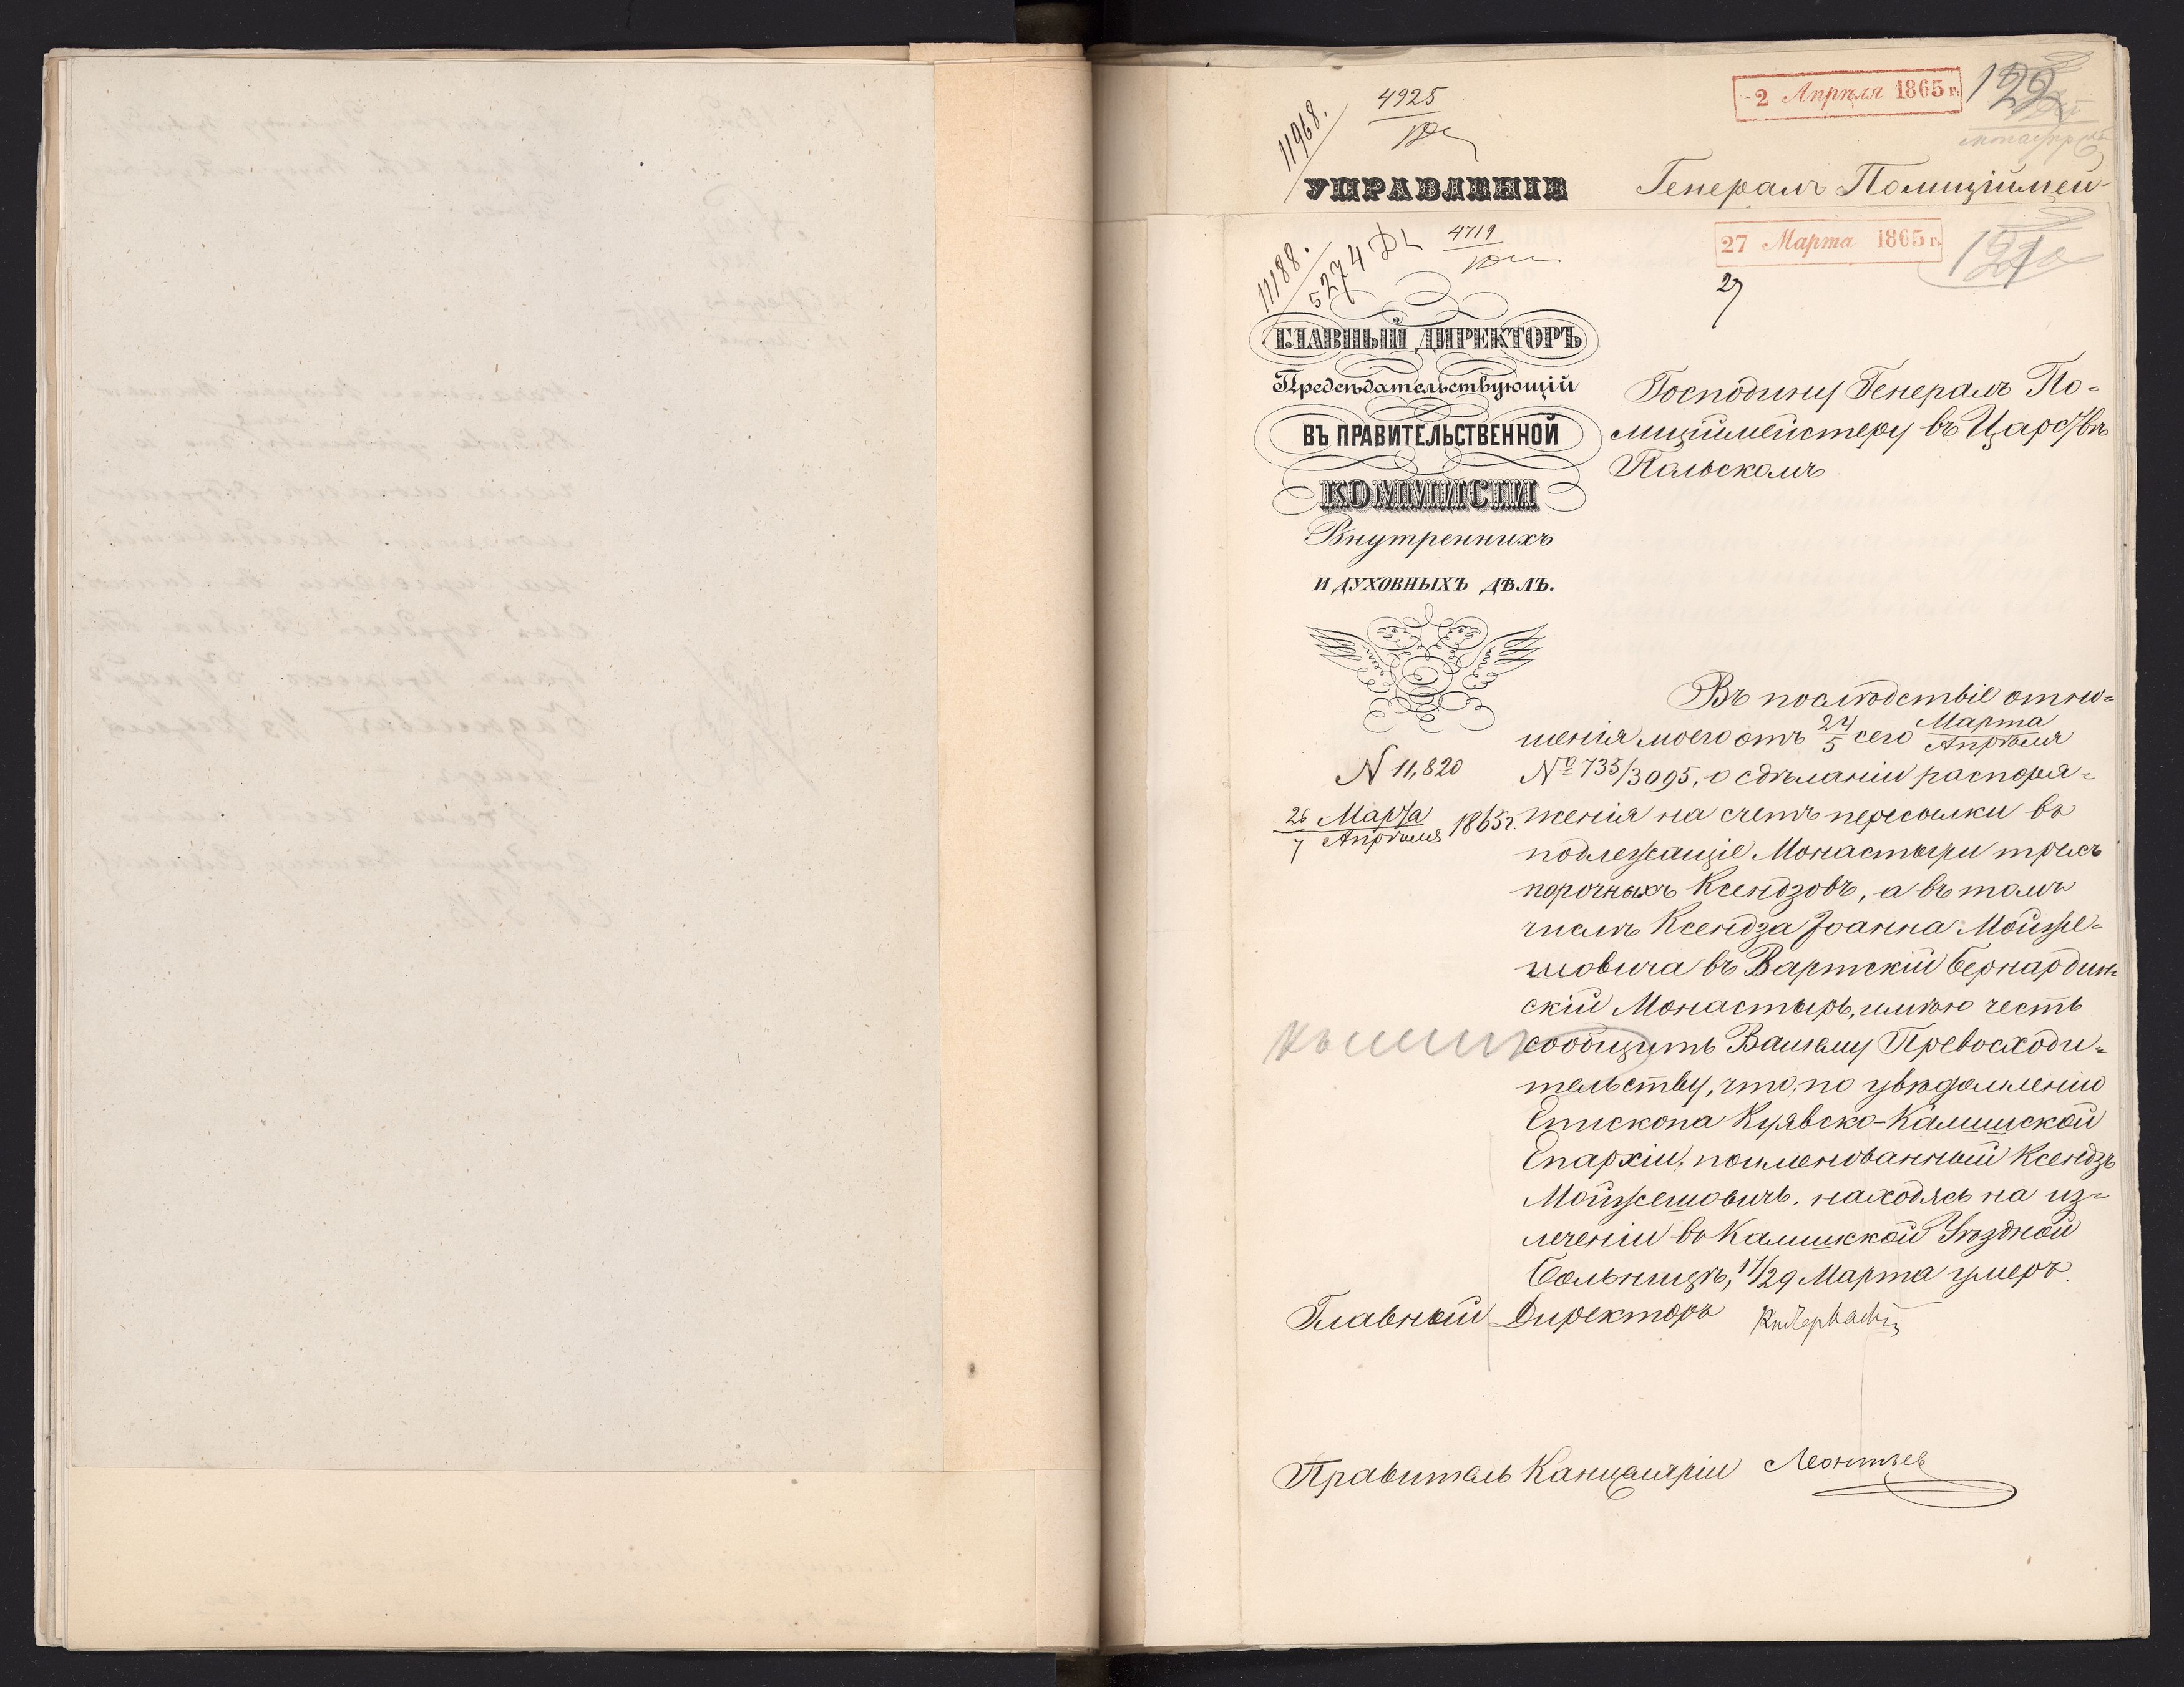 11968.
4925
2 Апрѣля 1865 г.
122
УПРАВЛЕНІЕ
Генералъ Полиціймей-
11188.
5274
4719
27 Марта 1865 г.
121
27
ГЛАВНЫЙ ДИРЕКТОРЪ
Предсѣдательствующій
ВЪ ПРАВИТЕЛЬСТВЕННОЙ
КОММИСІИ
Внутреннихъ
И ДУХОВНЫХЪ ДѢЛЪ.
N 11,820
26 Марта / 7 Апрѣля 1865 г.
Господину Генералъ По=
лиціймейстеру въ Царствѣ
Польскомъ
Въ послѣдствіе отно=
шенія моего отъ 24/5 сего Марта/Апрѣля
№ 735/3095, о сдѣланіи распоря=
женія на счетъ пересылки въ
подлежащіе Монастыри трехъ
порочныхъ Ксендзовъ, а въ томъ
числѣ Ксендза Іоанна Мойже=
шовича въ Вартскій Бернардин=
скій Монастырь, имѣю честь
сообщить Вашему Превосходи=
тельству, что, по увѣдомленію
Епископа Куявско-Калишской
Епархіи, поименованный Ксендзъ
Мойжешовичъ, находясь на из=
леченіи въ Калишской Уѣздной
Больницѣ, 17/29 Марта умеръ.
Главный Директоръ
Правитель Канцеляріи Леонтьев